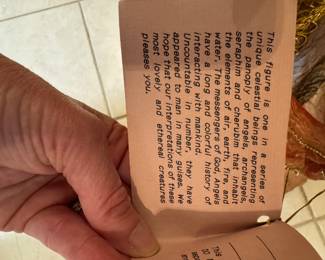 This figure is one in a series of
unique celestial beings representing
the panoply of angels, archangels,
seraphim and cherubim that inhabit
the elements of air, earth, fire, and
water. The messengers of God, Angels
have a long and colorful history of
interacting with mankind.
Uncountable in number, they have
appeared to man in many guises. We
hope that our interpretations of these
most lovely and ethereal creatures
pleases you.
This